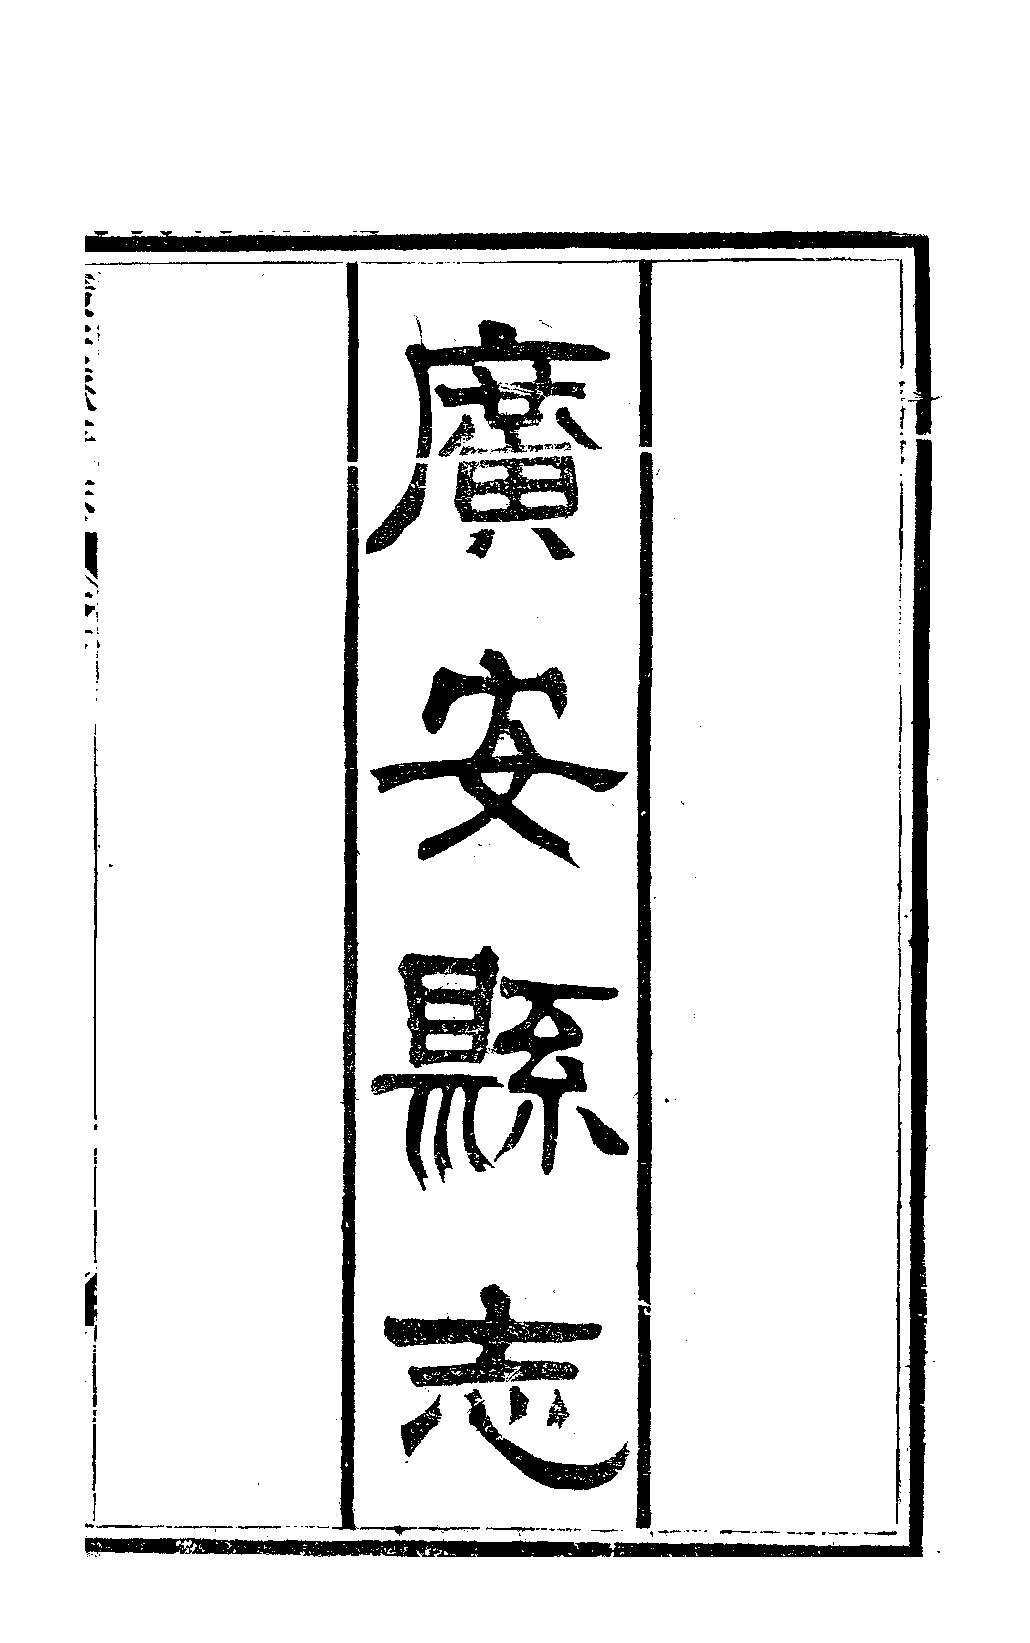 廣安縣志